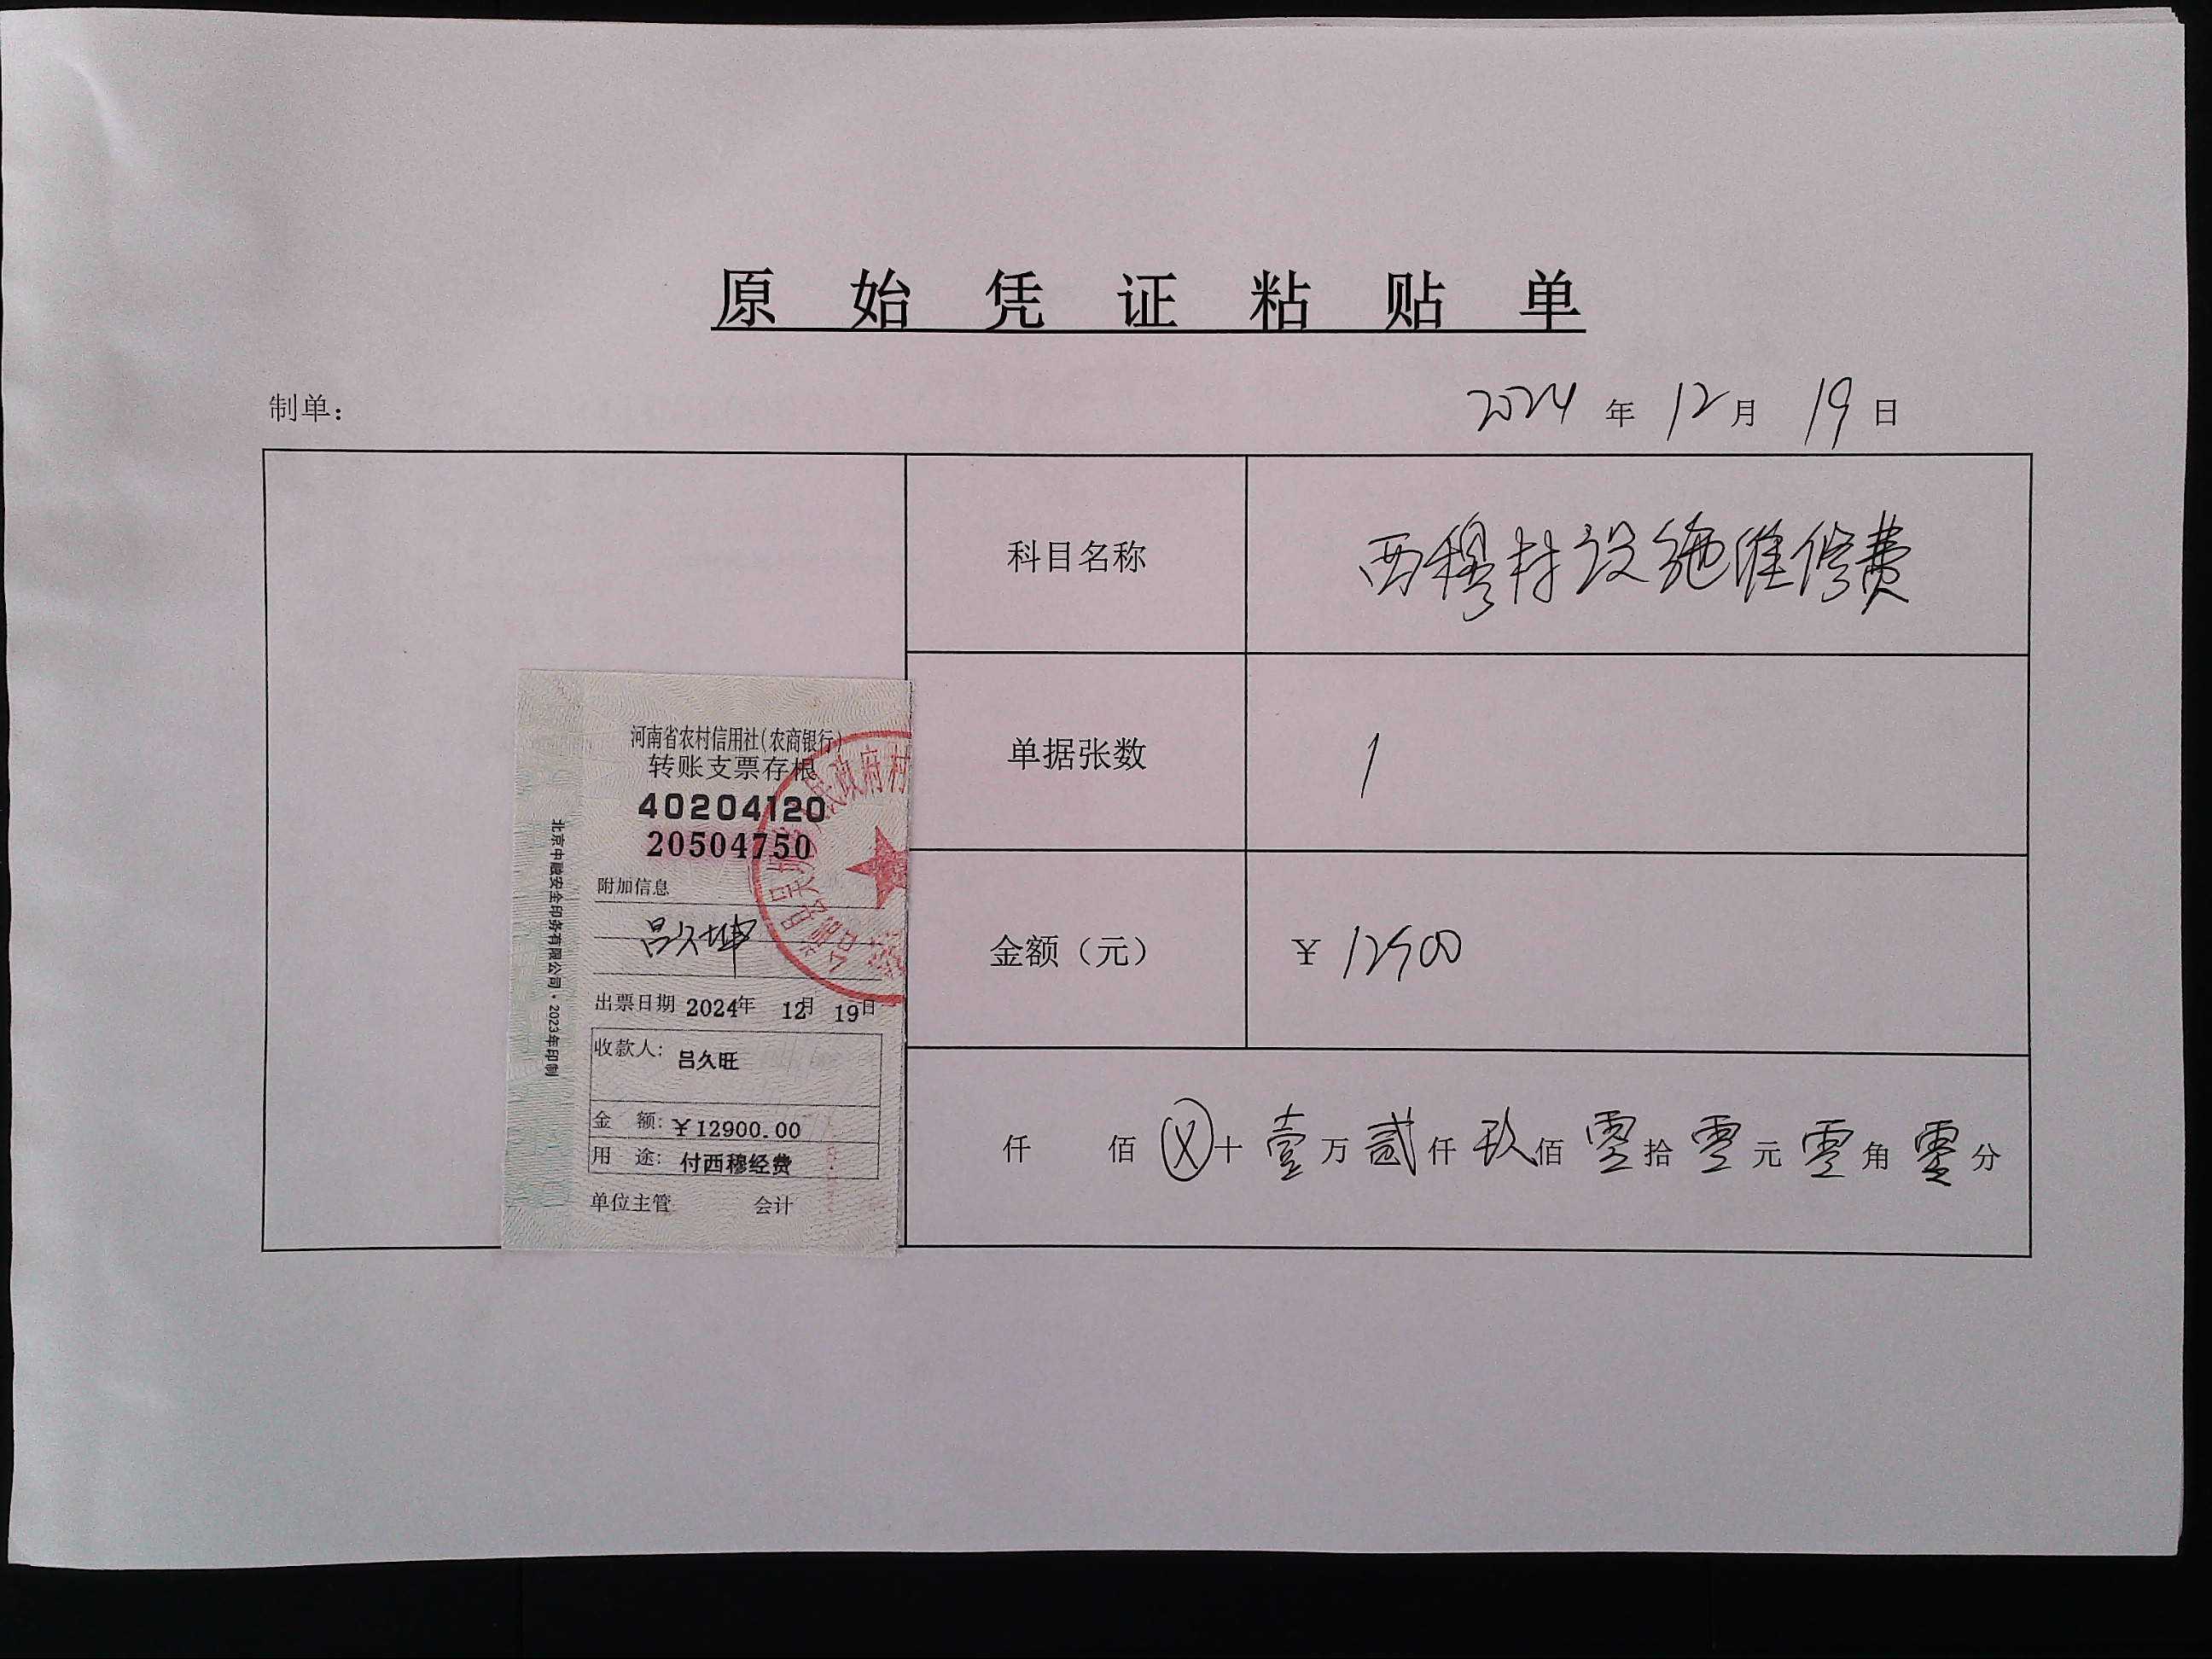 原始凭证粘贴单
制单：
2024年12月19日
科目名称
西穆村设施维修费
单据张数
1
金额（元）
¥12900
仟佰ⓧ十壹万贰仟玖佰零拾零元零角零分
河南省农村信用社(农商银行)
转账支票存根
40204120
20504750
附加信息
出票日期 2024年 12月 19日
收款人: 吕久旺
金 额: ¥12900.00
用 途: 付西穆经费
单位主管 会计
北京中融安全印务有限公司·2023年印制
民政府村